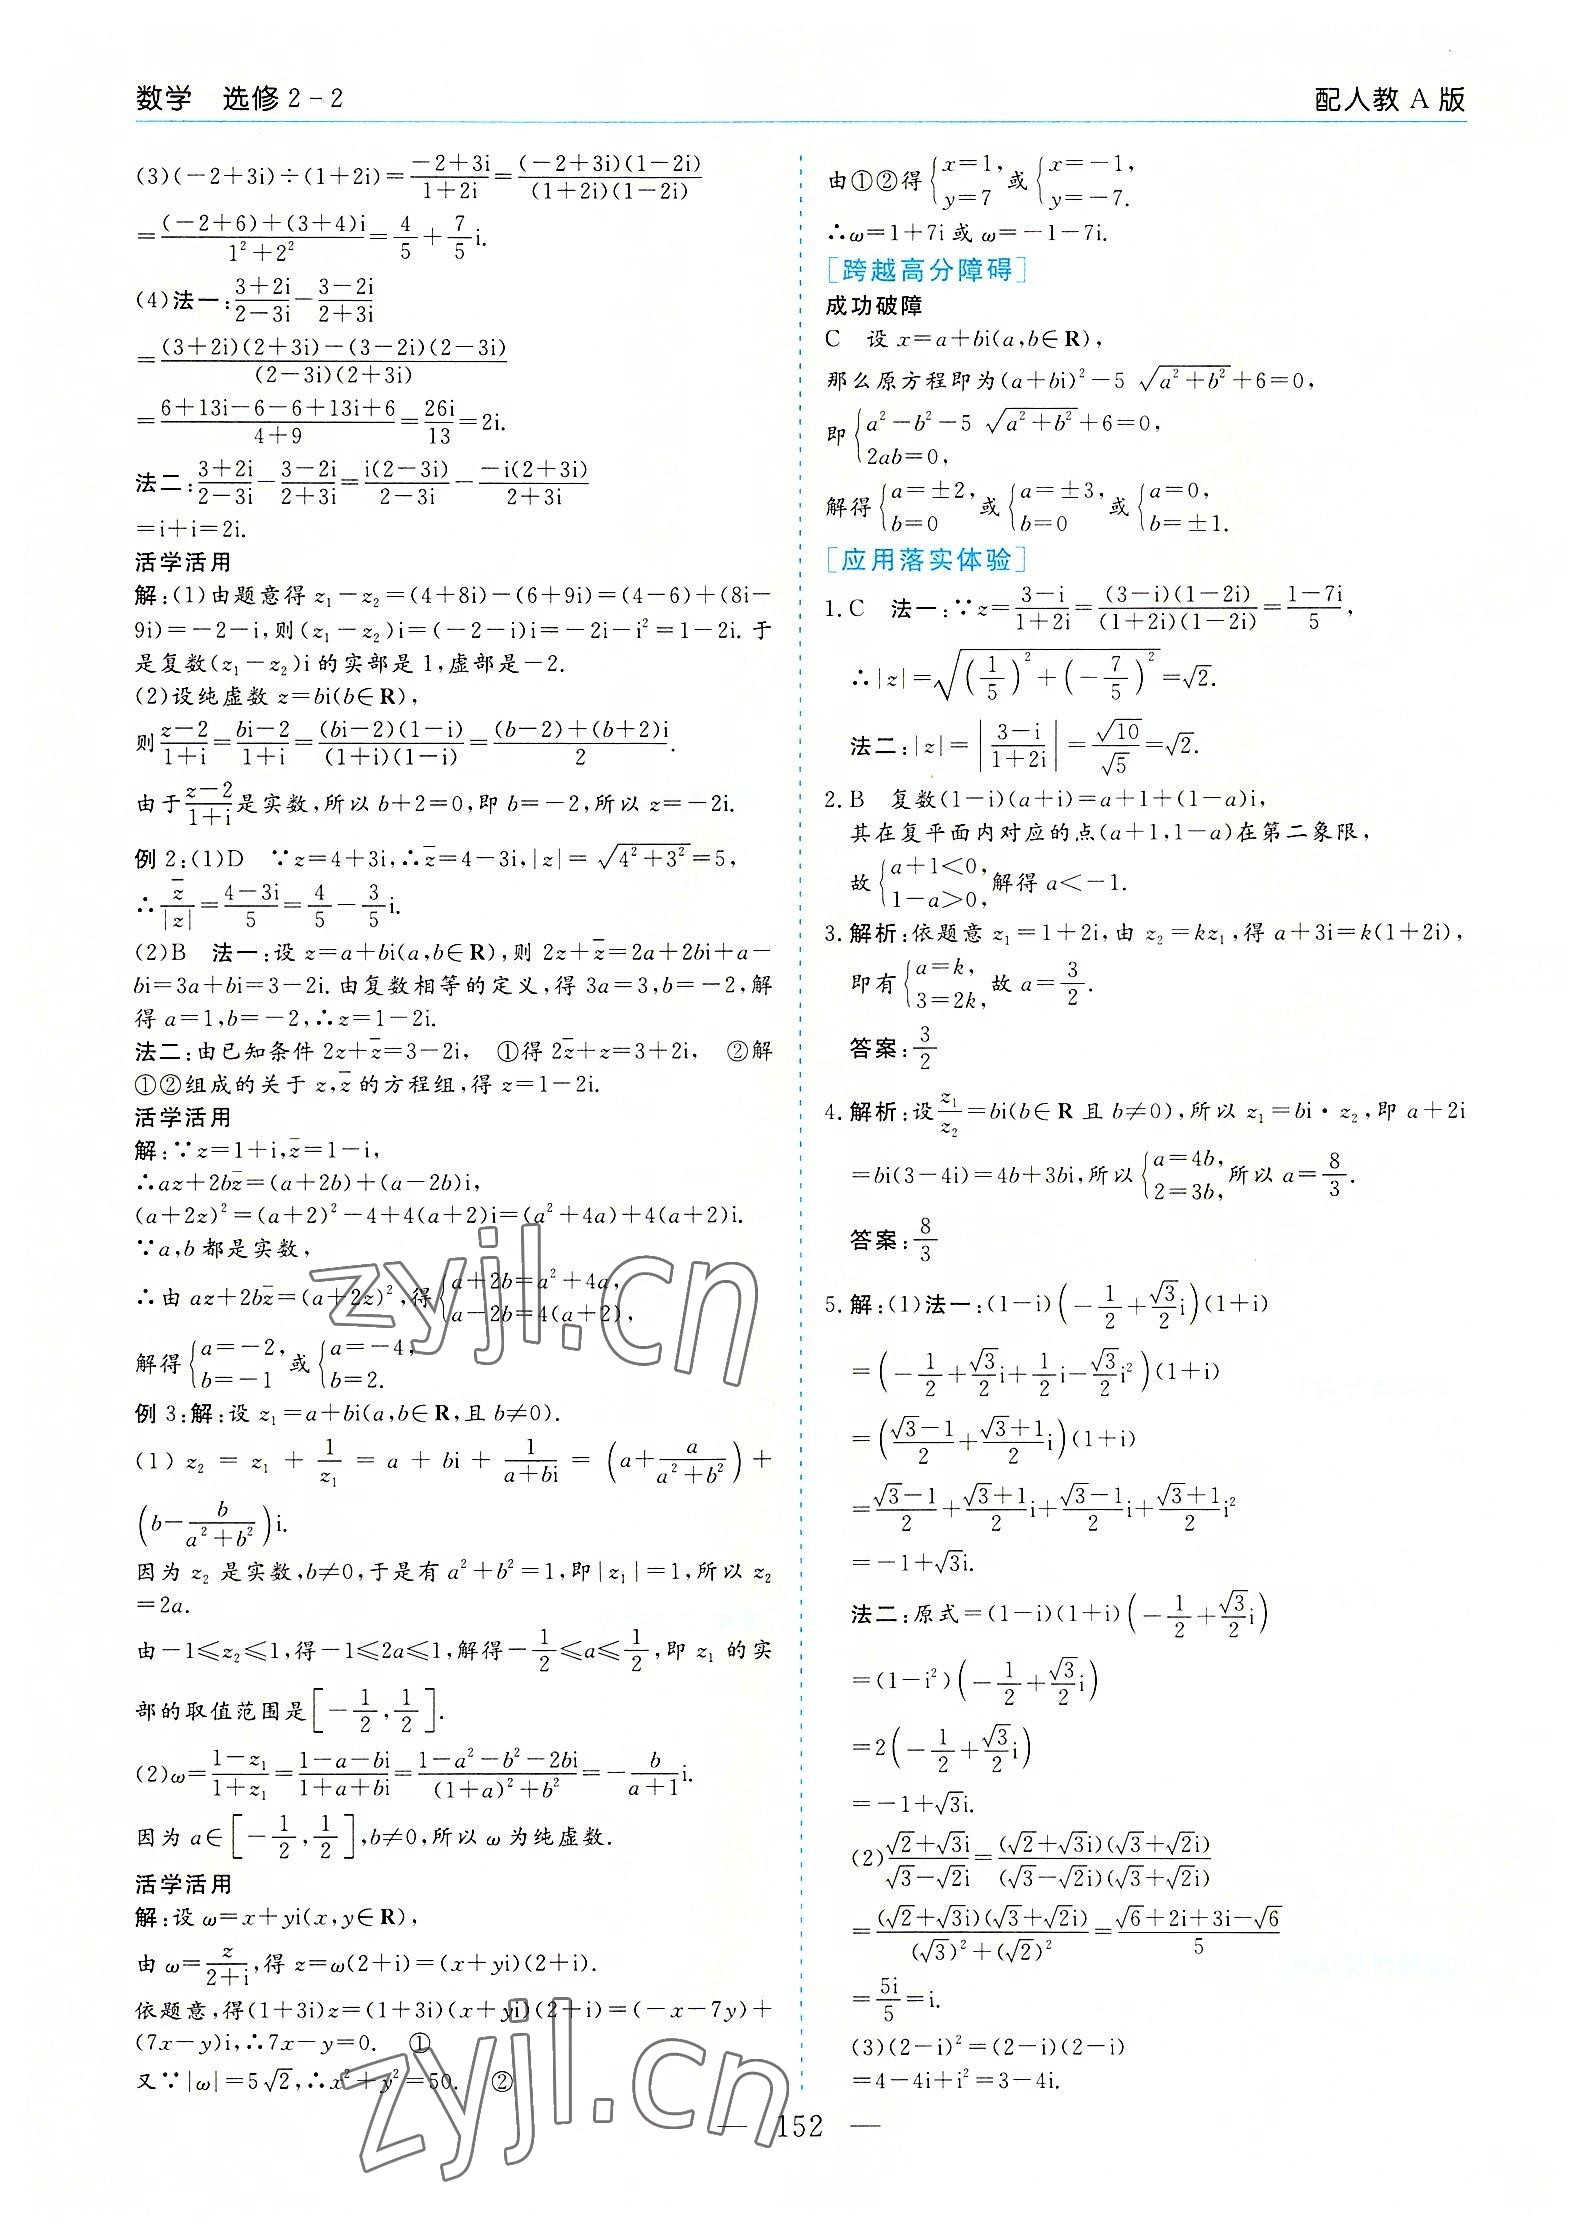 数学　选修2-2
配人教A版
(3)(-2+3i)÷(1+2i)=\frac{-2+3i}{1+2i}=\frac{(-2+3i)(1-2i)}{(1+2i)(1-2i)}
=\frac{(-2+6)+(3+4)i}{1²+2²}=\frac{4}{5}+\frac{7}{5}i.
(4)法一:\frac{3+2i}{2-3i}-\frac{3-2i}{2+3i}
=\frac{(3+2i)(2+3i)-(3-2i)(2-3i)}{(2-3i)(2+3i)}
=\frac{6+13i-6-6+13i+6}{4+9}=\frac{26i}{13}=2i.
法二:\frac{3+2i}{2-3i}-\frac{3-2i}{2+3i}=\frac{i(2-3i)}{2-3i}-\frac{-i(2+3i)}{2+3i}
=i+i=2i.
活学活用
解:(1)由题意得 z₁-z₂=(4+8i)-(6+9i)=(4-6)+(8i-
9i)=-2-i,则(z₁-z₂)i=(-2-i)i=-2i-i²=1-2i.于
是复数(z₁-z₂)i的实部是1,虚部是-2.
(2)设纯虚数 z=bi(b∈R),
则\frac{z-2}{1+i}=\frac{bi-2}{1+i}=\frac{(bi-2)(1-i)}{(1+i)(1-i)}=\frac{(b-2)+(b+2)i}{2}.
由于\frac{z-2}{1+i}是实数,所以 b+2=0,即 b=-2,所以 z=-2i.
例2:(1)D　∵z=4+3i,∴\bar{z}=4-3i,|z|=\sqrt{4²+3²}=5,
∴\frac{\bar{z}}{|z|}=\frac{4-3i}{5}=\frac{4}{5}-\frac{3}{5}i.
(2)B　法一:设 z=a+bi(a,b∈R),则 2z+\bar{z}=2a+2bi+a-
bi=3a+bi=3-2i.由复数相等的定义,得 3a=3,b=-2,解
得 a=1,b=-2,∴z=1-2i.
法二:由已知条件 2z+\bar{z}=3-2i,　①得 2\bar{z}+z=3+2i,　②解
①②组成的关于 z,\bar{z} 的方程组,得 z=1-2i.
活学活用
解:∵z=1+i,\bar{z}=1-i,
∴az+2b\bar{z}=(a+2b)+(a-2b)i,
(a+2z)²=(a+2)²-4+4(a+2)i=(a²+4a)+4(a+2)i.
∵a,b都是实数,
∴由 az+2b\bar{z}=(a+2z)²,得{a+2b=a²+4a, a-2b=4(a+2),
解得{a=-2, b=-1 或{a=-4, b=2.
例3:解:设 z₁=a+bi(a,b∈R,且 b≠0).
(1) z₂ = z₁ + \frac{1}{z₁} = a + bi + \frac{1}{a+bi} = (a+\frac{a}{a²+b²}) +
(b-\frac{b}{a²+b²})i.
因为 z₂ 是实数,b≠0,于是有 a²+b²=1,即|z₁|=1,所以 z₂
=2a.
由-1≤z₂≤1,得-1≤2a≤1,解得-\frac{1}{2}≤a≤\frac{1}{2},即 z₁ 的实
部的取值范围是[-\frac{1}{2},\frac{1}{2}].
(2)ω=\frac{1-z₁}{1+z₁}=\frac{1-a-bi}{1+a+bi}=\frac{1-a²-b²-2bi}{(1+a)²+b²}=-\frac{b}{a+1}i.
因为 a∈[-\frac{1}{2},\frac{1}{2}],b≠0,所以 ω 为纯虚数.
活学活用
解:设 ω=x+yi(x,y∈R),
由 ω=\frac{z}{2+i},得 z=ω(2+i)=(x+yi)(2+i).
依题意,得(1+3i)z=(1+3i)(x+yi)(2+i)=(-x-7y)+
(7x-y)i,∴7x-y=0.　①
又∵|ω|=5\sqrt{2},∴x²+y²=50.　②
由①②得{x=1, y=7 或{x=-1, y=-7.
∴ω=1+7i或 ω=-1-7i.
[跨越高分障碍]
成功破障
C　设 x=a+bi(a,b∈R),
那么原方程即为(a+bi)²-5\sqrt{a²+b²}+6=0,
即{a²-b²-5\sqrt{a²+b²}+6=0, 2ab=0,
解得{a=±2, b=0 或{a=±3, b=0 或{a=0, b=±1.
[应用落实体验]
1.C　法一:∵z=\frac{3-i}{1+2i}=\frac{(3-i)(1-2i)}{(1+2i)(1-2i)}=\frac{1-7i}{5},
∴|z|=\sqrt{(\frac{1}{5})²+(-\frac{7}{5})²}=\sqrt{2}.
法二:|z|=|\frac{3-i}{1+2i}|=\frac{\sqrt{10}}{\sqrt{5}}=\sqrt{2}.
2.B　复数(1-i)(a+i)=a+1+(1-a)i,
其在复平面内对应的点(a+1,1-a)在第二象限,
故{a+1<0, 1-a>0,解得 a<-1.
3.解析:依题意 z₁=1+2i,由 z₂=kz₁,得 a+3i=k(1+2i),
即有{a=k, 3=2k,故 a=\frac{3}{2}.
答案:\frac{3}{2}
4.解析:设\frac{z₁}{z₂}=bi(b∈R且 b≠0),所以 z₁=bi·z₂,即 a+2i
=bi(3-4i)=4b+3bi,所以{a=4b, 2=3b,所以 a=\frac{8}{3}.
答案:\frac{8}{3}
5.解:(1)法一:(1-i)(-\frac{1}{2}+\frac{\sqrt{3}}{2}i)(1+i)
=(-\frac{1}{2}+\frac{\sqrt{3}}{2}i+\frac{1}{2}i-\frac{\sqrt{3}}{2}i²)(1+i)
=(\frac{\sqrt{3}-1}{2}+\frac{\sqrt{3}+1}{2}i)(1+i)
=\frac{\sqrt{3}-1}{2}+\frac{\sqrt{3}+1}{2}i+\frac{\sqrt{3}-1}{2}i+\frac{\sqrt{3}+1}{2}i²
=-1+\sqrt{3}i.
法二:原式=(1-i)(1+i)(-\frac{1}{2}+\frac{\sqrt{3}}{2}i)
=(1-i²)(-\frac{1}{2}+\frac{\sqrt{3}}{2}i)
=2(-\frac{1}{2}+\frac{\sqrt{3}}{2}i)
=-1+\sqrt{3}i.
(2)\frac{\sqrt{2}+\sqrt{3}i}{\sqrt{3}-\sqrt{2}i}=\frac{(\sqrt{2}+\sqrt{3}i)(\sqrt{3}+\sqrt{2}i)}{(\sqrt{3}-\sqrt{2}i)(\sqrt{3}+\sqrt{2}i)}
=\frac{(\sqrt{2}+\sqrt{3}i)(\sqrt{3}+\sqrt{2}i)}{(\sqrt{3})²+(\sqrt{2})²}=\frac{\sqrt{6}+2i+3i-\sqrt{6}}{5}
=\frac{5i}{5}=i.
(3)(2-i)²=(2-i)(2-i)
=4-4i+i²=3-4i.
— 152 —
zyjl.cn
zyjl.cn